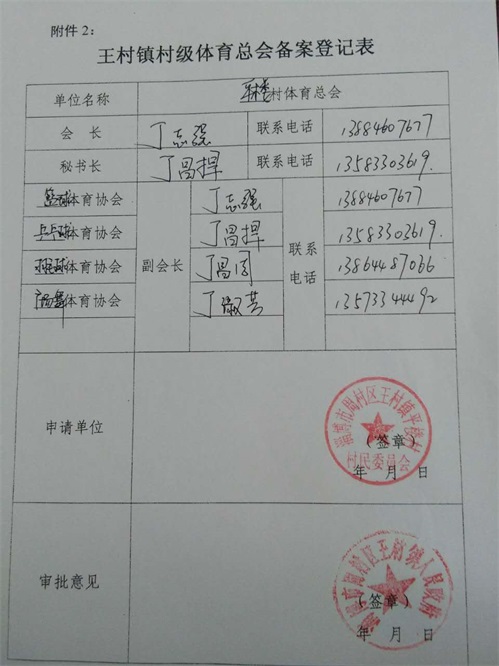 附件2：
王村镇村级体育总会备案登记表
单位名称 平楼村体育总会
会 长 丁志强 联系电话 13884607677
秘书长 丁昌捍 联系电话 13583303619.
篮球体育协会 丁志强 13884607677
乒乓球体育协会 丁昌捍 13583303619.
体育协会 副会长 丁昌国 联系电话 13864487066
广场舞体育协会 丁淑芸 13573344492
申请单位
淄博市周村区王村镇平楼村
村民委员会
（签章）
年 月 日
审批意见
淄博市周村区王村镇人民政府
（签章）
年 月 日